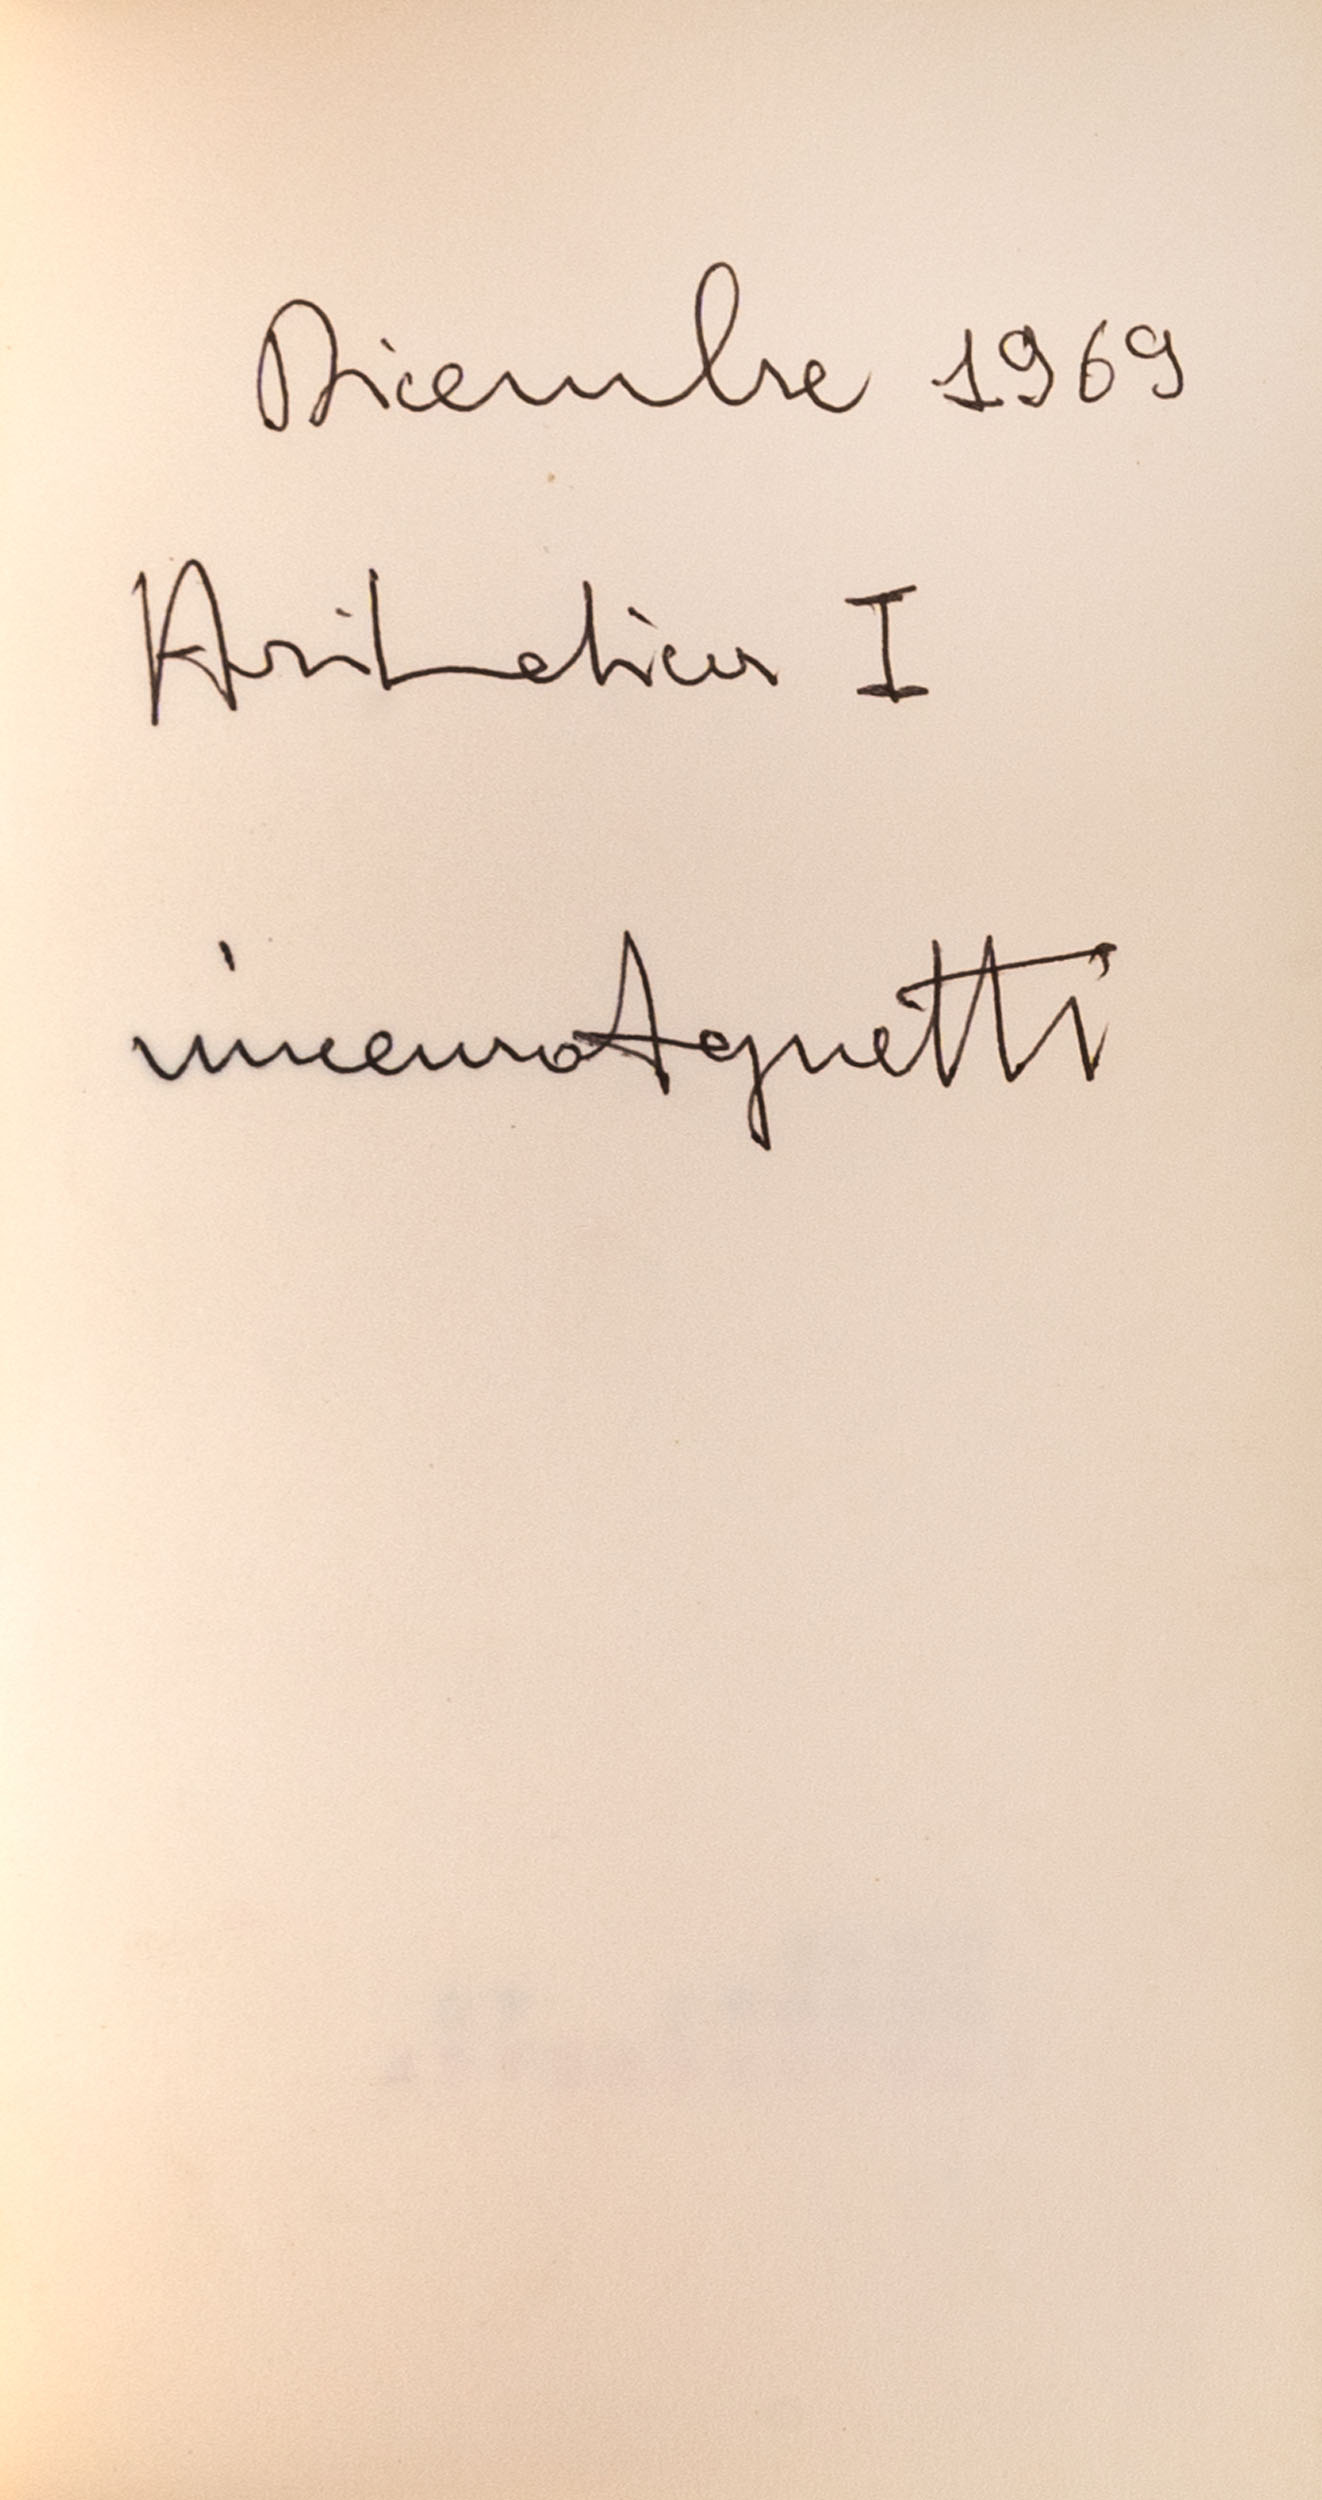 Dicembre 1969
I
vincenzo Agnetti